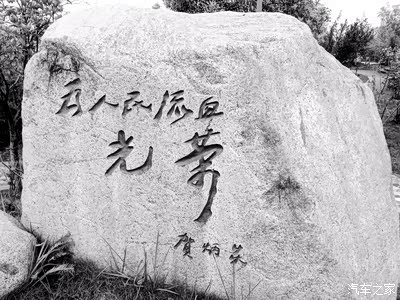 为人民流血
光荣
贺炳炎
汽车之家